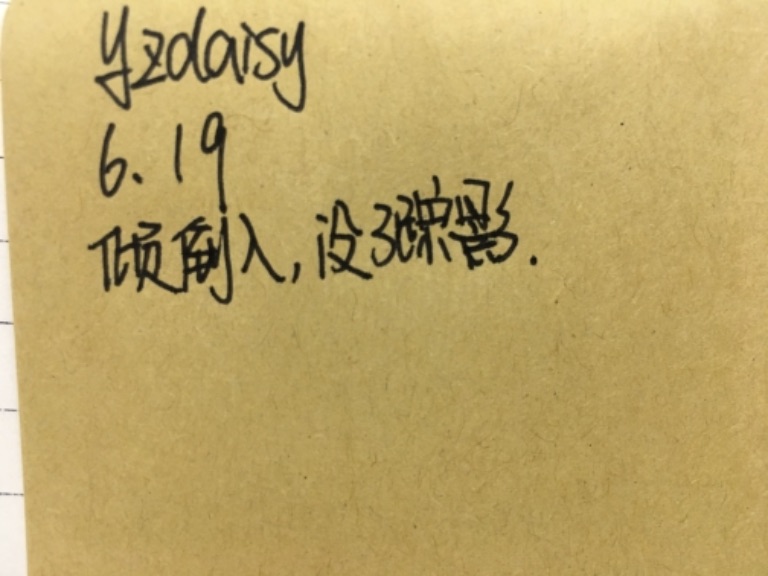 yzdaisy
6.19
倾倒入,没了踪影.